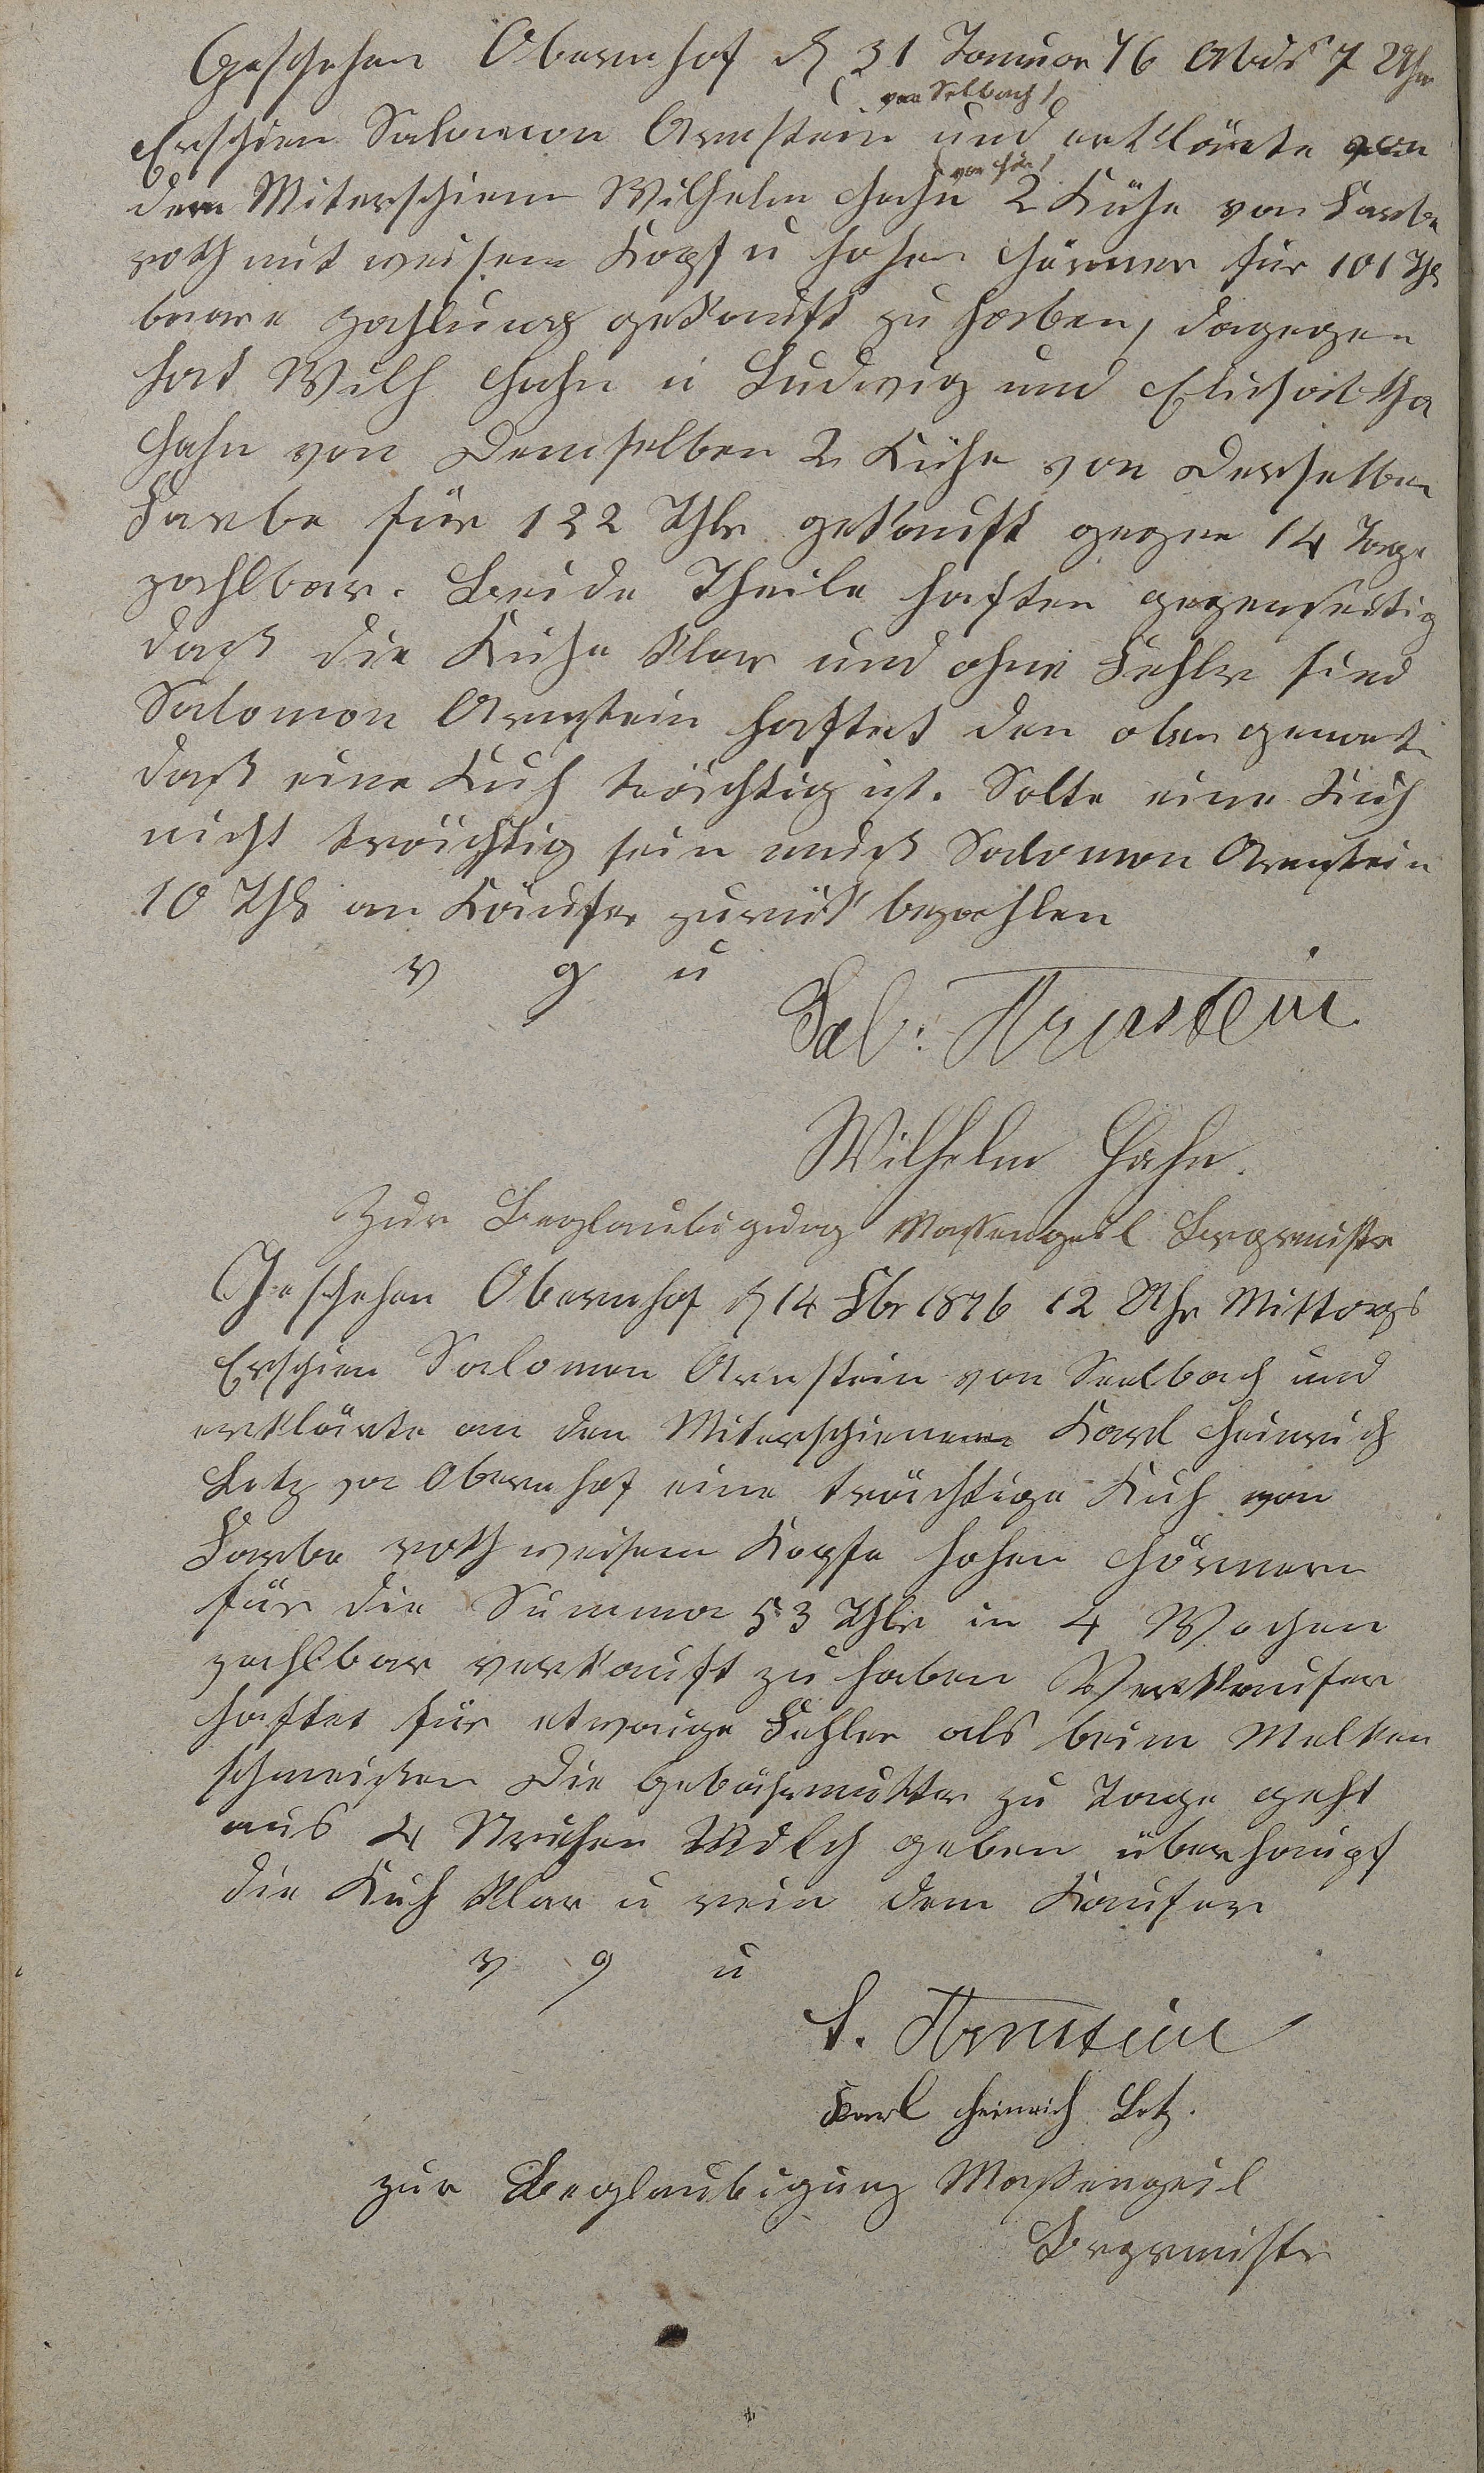 Geschehen Obernhof d 31 Januar 76 Abds 7 Uhr
(von Selbach)
Erschien Salomon Arnstein und erklärte von
(von hier)
dem Miterschienn Wilhelm Hahn 2 Kühe von Farbe
roth mit weisem Kopf u hohen Hörner für 101 Thl
baare Zahlung gekauft zu haben, dagegen
hat Wilh Hahn u Ludwig und Elisabetha
Hahn von Demselben 2 Kühe von Derselben
Farbe für 122 Thlr gekauft gegen 14 Tage
zahlbar. Beide Theile haften gegenseitig
daß die Kühe klar und ohne Fehler sind
Salomon Arnstein haftet den oben genant
daß eine Kuh trächtig ist. Solte eine Kuh
nicht trächtig sein muß Salomon Arnstein
10 Thl an Käufer zurük bezahlen
v g u
Sal: Arnstein
Wilhelm Hahn.
Zur Beglaubigung Massengeil Brgrmistr
Geschehen Obernhof d 14 Fbr 1876 12 Uhr Mittags
Erschien Salomon Arnstein von Seelbach und
erklärte an den Miterschienen Karl Heinrich
Lotz von Obernhof eine trächtige Kuh von
Farbe roth weisem Kopfe hohen Hörnern
für die Summa 53 Thlr in 4 Wochen
zahlbar verkauft zu haben Verkäufer
haftet für etwaige Fehler als beim Melken
schmeißen Die Gebährmutter zu Tage geht
aus 4 Strichen Milch geben überhaupt
die Kuh klar u rein dem Kaufer
v g u
S. Arnstein
Karl Heinrich Lotz.
zur Beglaubigung Massengeil
Brgrmistr